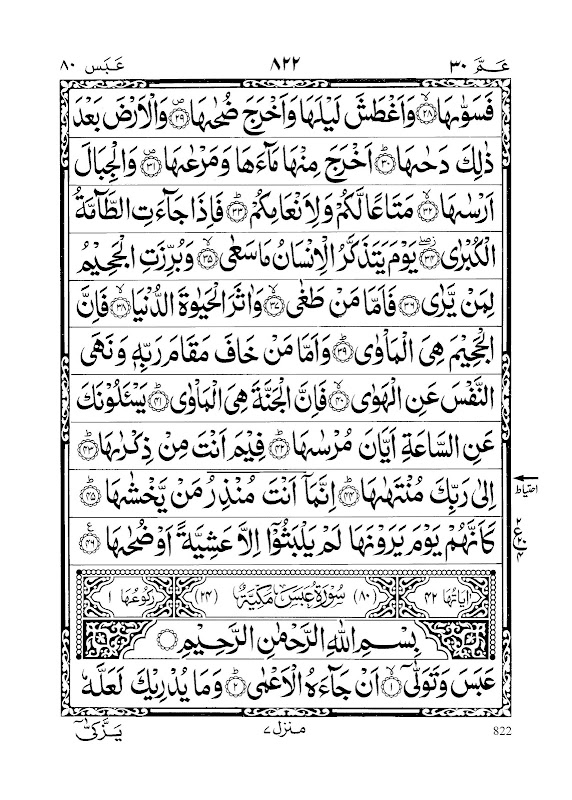 عَمَّ ٣٠ ٨٢٢ عَبَسَ ٨٠
فَسَوّٰىهَا ﴿٢٨﴾ وَاَغْطَشَ لَيْلَهَا وَاَخْرَجَ ضُحٰىهَا ﴿٢٩﴾ وَالْاَرْضَ بَعْدَ
ذٰلِكَ دَحٰىهَا ﴿٣٠﴾ اَخْرَجَ مِنْهَا مَآءَهَا وَمَرْعٰىهَا ﴿٣١﴾ وَالْجِبَالَ
اَرْسٰىهَا ﴿٣٢﴾ مَتَاعًا لَّكُمْ وَلِاَنْعَامِكُمْ ﴿٣٣﴾ فَاِذَا جَآءَتِ الطَّآمَّةُ
الْكُبْرٰى ﴿٣٤﴾ يَوْمَ يَتَذَكَّرُ الْاِنْسَانُ مَا سَعٰى ﴿٣٥﴾ وَبُرِّزَتِ الْجَحِيْمُ
لِمَنْ يَّرٰى ﴿٣٦﴾ فَاَمَّا مَنْ طَغٰى ﴿٣٧﴾ وَاٰثَرَ الْحَيٰوةَ الدُّنْيَا ﴿٣٨﴾ فَاِنَّ
الْجَحِيْمَ هِىَ الْمَاْوٰى ﴿٣٩﴾ وَاَمَّا مَنْ خَافَ مَقَامَ رَبِّهٖ وَنَهَى
النَّفْسَ عَنِ الْهَوٰى ﴿٤٠﴾ فَاِنَّ الْجَنَّةَ هِىَ الْمَاْوٰى ﴿٤١﴾ يَسْـَٔلُوْنَكَ
عَنِ السَّاعَةِ اَيَّانَ مُرْسٰىهَا ﴿٤٢﴾ فِيْمَ اَنْتَ مِنْ ذِكْرٰىهَا ﴿٤٣﴾
اِلٰى رَبِّكَ مُنْتَهٰىهَا ﴿٤٤﴾ اِنَّمَآ اَنْتَ مُنْذِرُ مَنْ يَّخْشٰىهَا ﴿٤٥﴾
احتياط
كَاَنَّهُمْ يَوْمَ يَرَوْنَهَا لَمْ يَلْبَثُوْٓا اِلَّا عَشِيَّةً اَوْ ضُحٰىهَا ﴿٤٦﴾
اٰيَاتُهَا ٤٢ (٨٠) سُوْرَةُ عَبَسَ مَكِّيَّةٌ (٢٤) رُكُوْعُهَا ١
بِسْمِ اللّٰهِ الرَّحْمٰنِ الرَّحِيْمِ
عَبَسَ وَتَوَلّٰىٓ ﴿١﴾ اَنْ جَآءَهُ الْاَعْمٰى ﴿٢﴾ وَمَا يُدْرِيْكَ لَعَلَّهٗ
822 منزل ٧ يَزَّكّٰىٓ